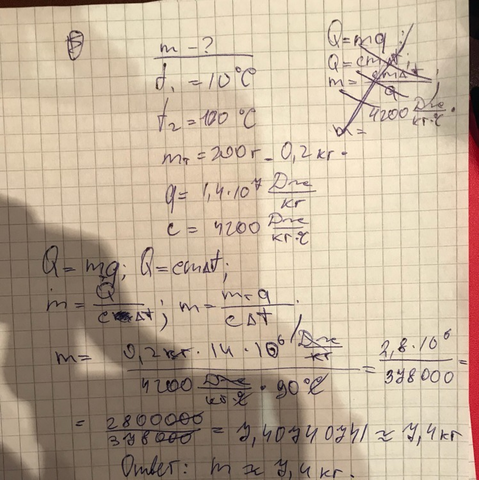 m - ?
t₁ = 10°C
t₂ = 100°C
mт = 200г = 0,2кг.
q = 1,4·10⁷ Дж/кг
c = 4200 Дж/кг·°C
Q = mq
Q = cmΔt;
m = cmΔt/q
4200 Дж/кг·°C
Q = mq; Q = cmΔt;
m = Q/cΔt; m = mтq/cΔt;
m = 0,2кг · 14 · 10⁶ Дж/кг / 4200 Дж/кг·°C · 90°C = 2,8 · 10⁶/378000 =
= 2800000/378000 = 7,40740741 ≈ 7,4кг
Ответ: m ≈ 7,4кг.